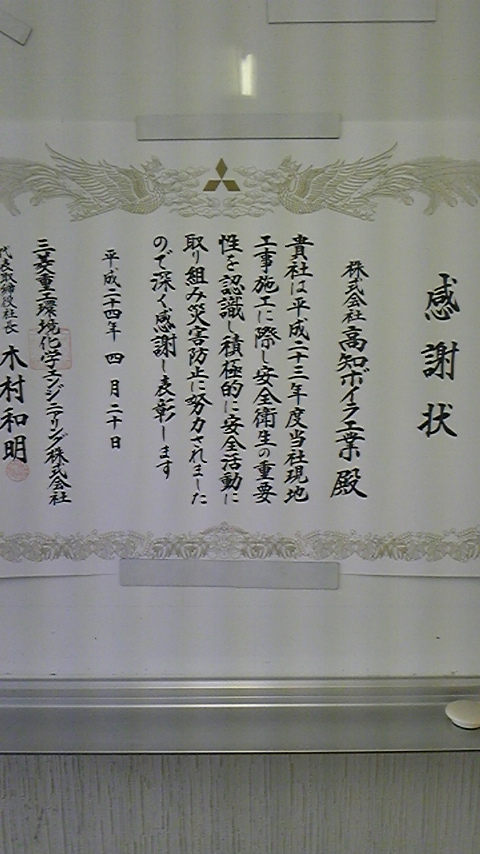 感謝状
株式会社 高知ボイラ工業 殿
貴社は平成二十三年度当社現地
工事施工に際し安全衛生の重要
性を認識し積極的に安全活動に
取り組み災害防止に努力されました
ので深く感謝し表彰します
平成二十四年 四月二十日
三菱重工環境化学エンジニアリング株式会社
代表取締役社長 木村和明